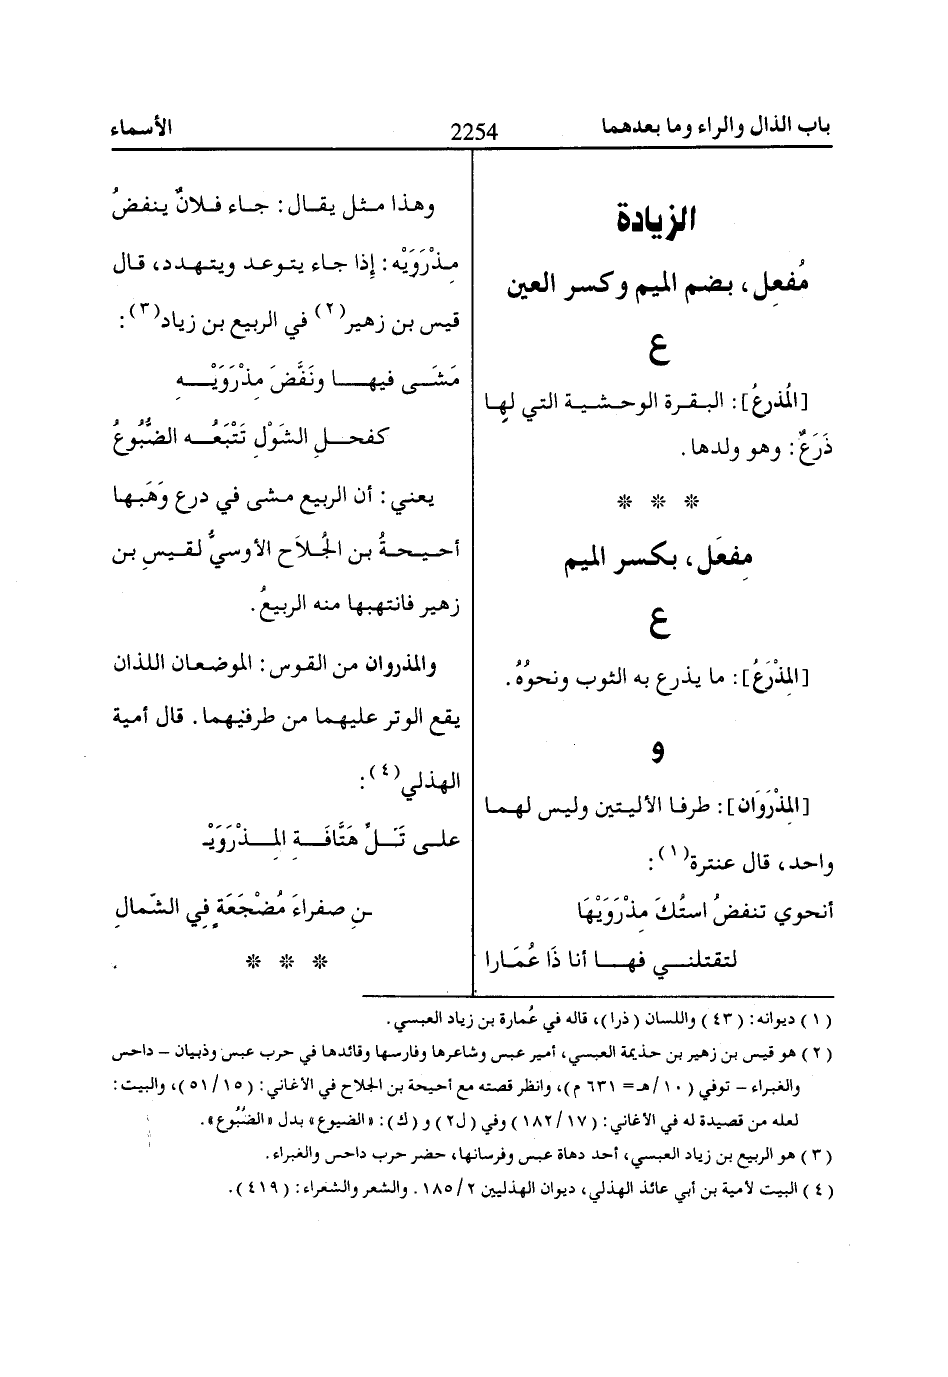 باب الذال والراء وما بعدهما
2254
الأسماء
الزيادة
مُفعِل، بضم الميم وكسر العين
ع
[المُذرِعُ]: البقرة الوحشية التي لها
ذَرَعٌ: وهو ولدها.
* * *
مِفعَل، بكسر الميم
ع
[المِذْرَعُ]: ما يذرع به الثوب ونحوُهُ.
و
[المِذْرَوَان]: طرفا الأليتين وليس لهما
واحد، قال عنترة(١):
أنحوي تنفضُ استُكَ مِذْرَوَيْهَا
لتقتلنـي فهـا أنا ذَا عُمَارا
وهذا مثل يقال: جاء فلانٌ ينفضُ
مِذْرَوَيْه: إذا جاء يتوعد ويتهدد، قال
قيس بن زهير(٢) في الربيع بن زياد(٣):
مَشَـى فيهـا ونَفَّضَ مِذْرَوَيْـه
كفحـلِ الشَوْلِ تَتْبَعُـه الضُّبُوعُ
يعني: أن الربيع مشى في درع وَهَبها
أحيحةُ بن الجُلاَح الأوسيُّ لقيسِ بن
زهير فانتهبها منه الربيعُ.
والمذروان من القوس: الموضعان اللذان
يقع الوتر عليهما من طرفيهما. قال أمية
الهذلي(٤):
علـى تَـلِّ هَتَّافَـةِ المِـذْرَوَيْـ
ـنِ صفراءَ مُضْجَعَةٍ فِي الشّمالِ
* * *
(١) ديوانه: (٤٣) واللسان (ذرا)، قاله في عُمارة بن زياد العبسي.
(٢) هو قيس بن زهير بن حذيمة العبسي، أمير عبس وشاعرها وفارسها وقائدها في حرب عبس وذبيان – داحس
والغبراء – توفي (١٠/هـ= ٦٣١ م)، وانظر قصته مع أحيحة بن الجلاح في الأغاني: (١٥/٥١)، والبيت:
لعله من قصيدة له في الأغاني: (١٧/١٨٢) وفي (ل٢) و(ك): «الضيوع» بدل «الضُبُوع».
(٣) هو الربيع بن زياد العبسي، أحد دهاة عبس وفرسانها، حضر حرب داحس والغبراء.
(٤) البيت لأمية بن أبي عائذ الهذلي، ديوان الهذليين ٢/١٨٥. والشعر والشعراء: (٤١٩).